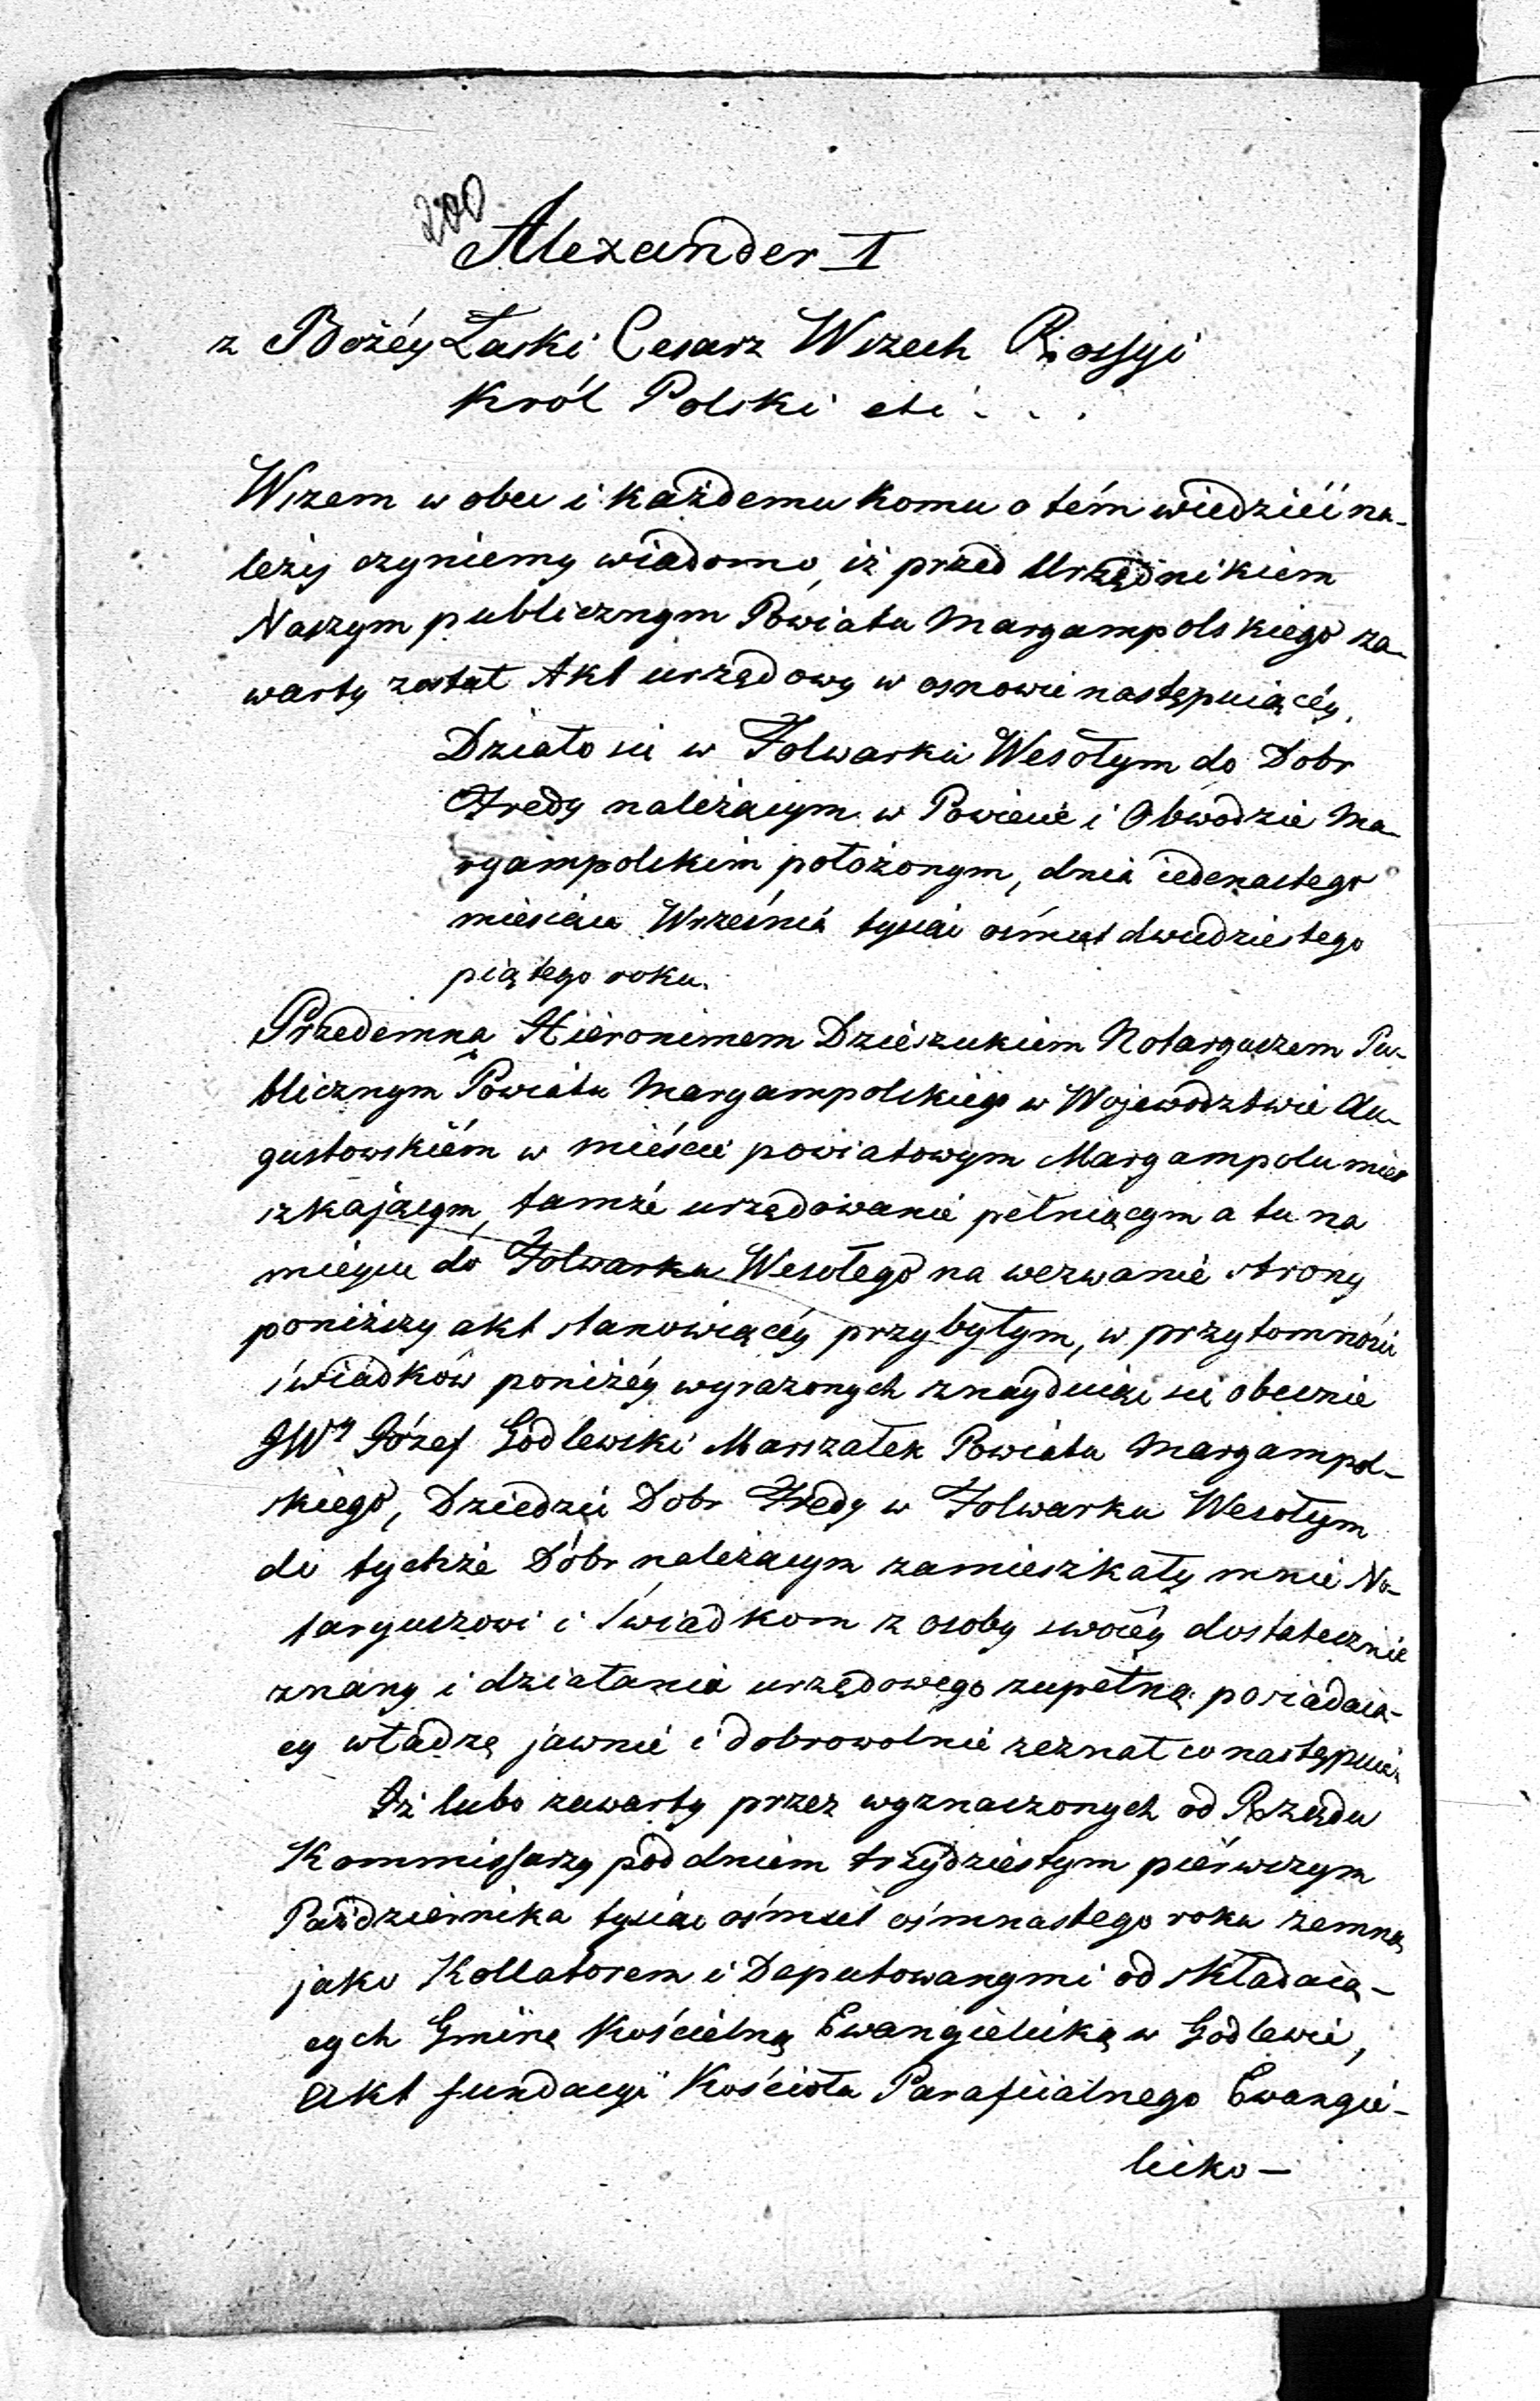 200
Alexander I
z Bożéy Łaski Cesarz Wszech Rossyi
Król Polski etc. . .
Wszem w obec i każdemu komu o tém wiedzieć na-
leży czyniemy wiadomo, iż przed Urzędnikiem
Naszym publicznym Powiatu Maryampolskiego za-
warty został Akt urzędowy w osnowie następuiącéy.
Działo się w Folwarku Wesołym do Dobr
Fredy należącym w Powiecie i Obwodzie Ma-
ryampolskim położonym, dnia iedenastego
miesiąca Września tysiąc ośmset dwudziestego
piątego roku.
Przedemną Hieronimem Notaryuszem Pu-
blicznym Powiatu Maryampolskiego w Wojewodztwie Au-
gustowskiém w mieście powiatowym Maryampolu mie-
szkającym, tamże urzędowanie pełniącym a tu na
mieyscu do Folwarku Wesołego na wezwanie strony
poniższy akt stanowiącéy przybyłym, w przytomności
świadków poniżéy wyrażonych znayduiąc się obecnie
JWy Józef Godlewski Marszałek Powiatu Maryampol-
skiego, Dziedzic Dobr Fredy w Folwarku Wesołym
do tychże Dóbr należącym zamieszkały mnie No-
taryuszowi i Świadkom z osoby swoiéy dostatecznie
znany i działania urzędowego zupełną posiadaią-
cy władzę jawnie i dobrowolnie zeznał co następuie
Iż lubo zawarty przez wyznaczonych od Rządu
Kommissarzy pod dniem trzydziestym piérwszym
Października tysiąc ośmset ośmnastego roku zemną
jako Kollatorem i Deputowanymi od składaią-
cych Gminę Kościelną Ewangielicką w Godlewie,
Akt fundacyi Kościoła Parafiialnego Ewangie-
licko-